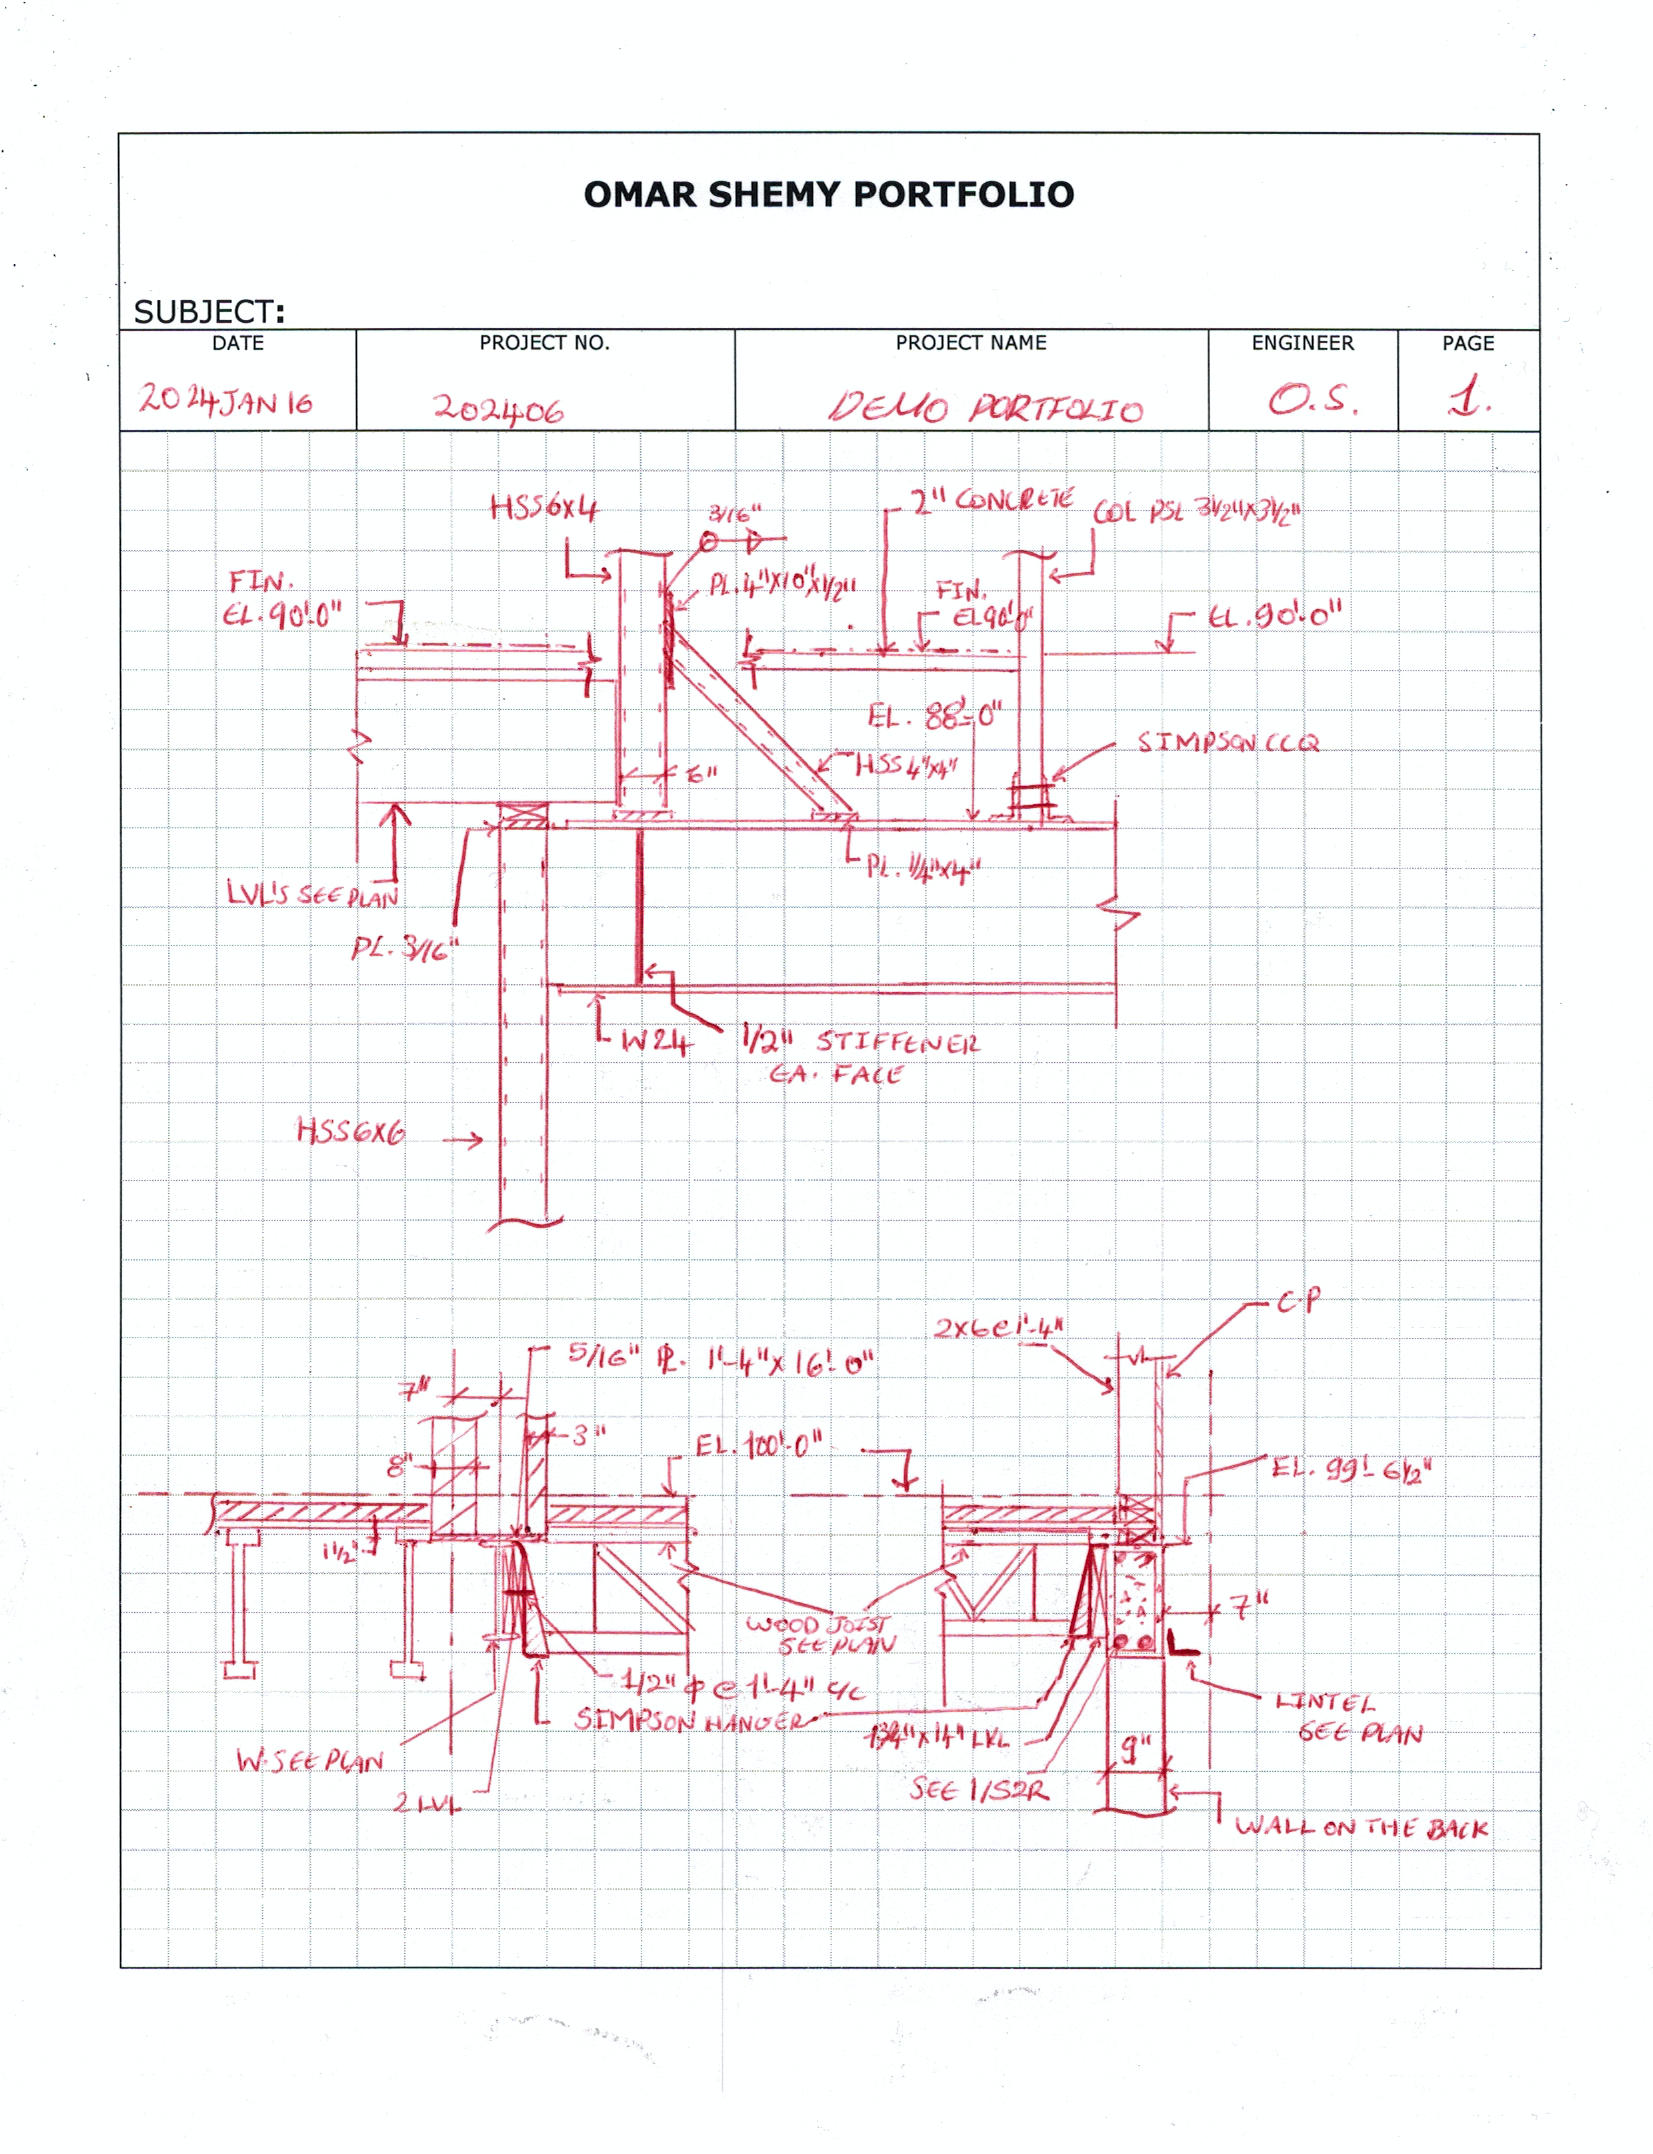 OMAR SHEMY PORTFOLIO
SUBJECT:
DATE
PROJECT NO.
PROJECT NAME
ENGINEER
PAGE
2024JAN16
202406
DEMO PORTFOLIO
O.S.
1.
HSS6x4
3/16"
2" CONCRETE
COL PSL 3 1/2"x3 1/2"
FIN.
EL.90'-0"
PL.4"x10"x1/2"
FIN.
EL90'-0"
EL.90'-0"
EL. 88'-0"
SIMPSON CCQ
6"
HSS4"x4"
PL. 1/4"x4"
LVL'S SEE PLAN
PL. 3/16"
W24
1/2" STIFFENER
EA. FACE
HSS6x6
C.P
2x6@1'-4"
5/16" PL. 1'-4"x16'-0"
7"
3"
8"
EL. 100'-0"
EL. 99'-6 1/2"
1 1/2"
WOOD JOIST
SEE PLAN
7"
1/2" φ @ 1'-4" c/c
SIMPSON HANGER
LINTEL
SEE PLAN
1 3/4"x14" LVL
W. SEE PLAN
9"
SEE 1/S2R
2 LVL
WALL ON THE BACK